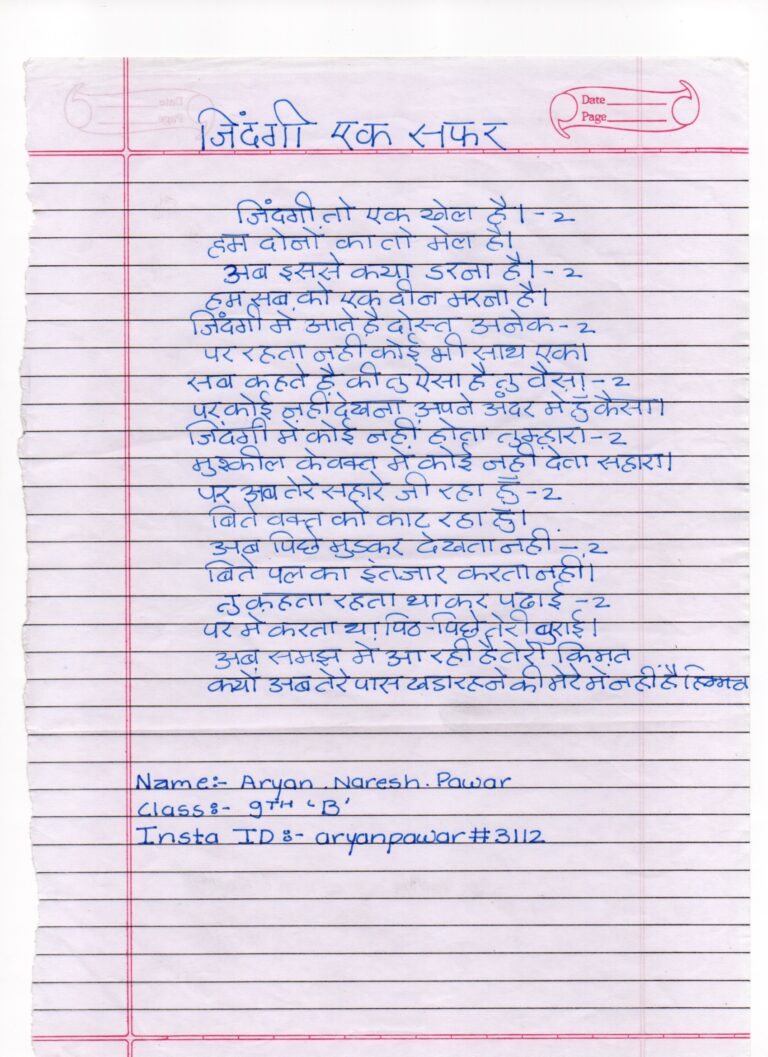 Date
Page
जिंदगी एक सफर
जिंदगी तो एक खेल है। - 2
हम दोनों का तो मेल है।
अब इससे क्या डरना है। - 2
हम सब को एक दीन मरना है।
जिंदगी में आते है दोस्त अनेक - 2
पर रहता नहीं कोई भी साथ एक।
सब कहते है की तु ऐसा है तु वैसा - 2
पर कोई नहीं देखना अपने अंदर मे हुँ कैसा।
जिंदगी में कोई नहीं होता तुम्हारा - 2
मुश्कील के वक्त में कोई नहीं देता सहारा।
पर अब तेरे सहारे जी रहा हुँ - 2
बिते वक्त को काट रहा हुँ।
अब पिछे मुडकर देखता नही - 2
बिते पल का इंतजार करता नहीं।
तु कहता रहता था कर पढाई - 2
पर मे करता था पिठ-पिछे तेरी बुराई।
अब समझ मे आ रही है तेरी किमत
क्यों अब तेरे पास खडा रहने की मेरे मे नहीं है हिम्मत
Name:- Aryan . Naresh . Pawar
Class:- 9TH 'B'
Insta ID:- aryanpawar#3112